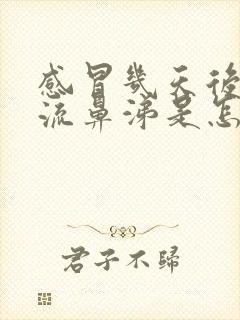 感冒幾天後
流鼻涕是怎
君子不歸